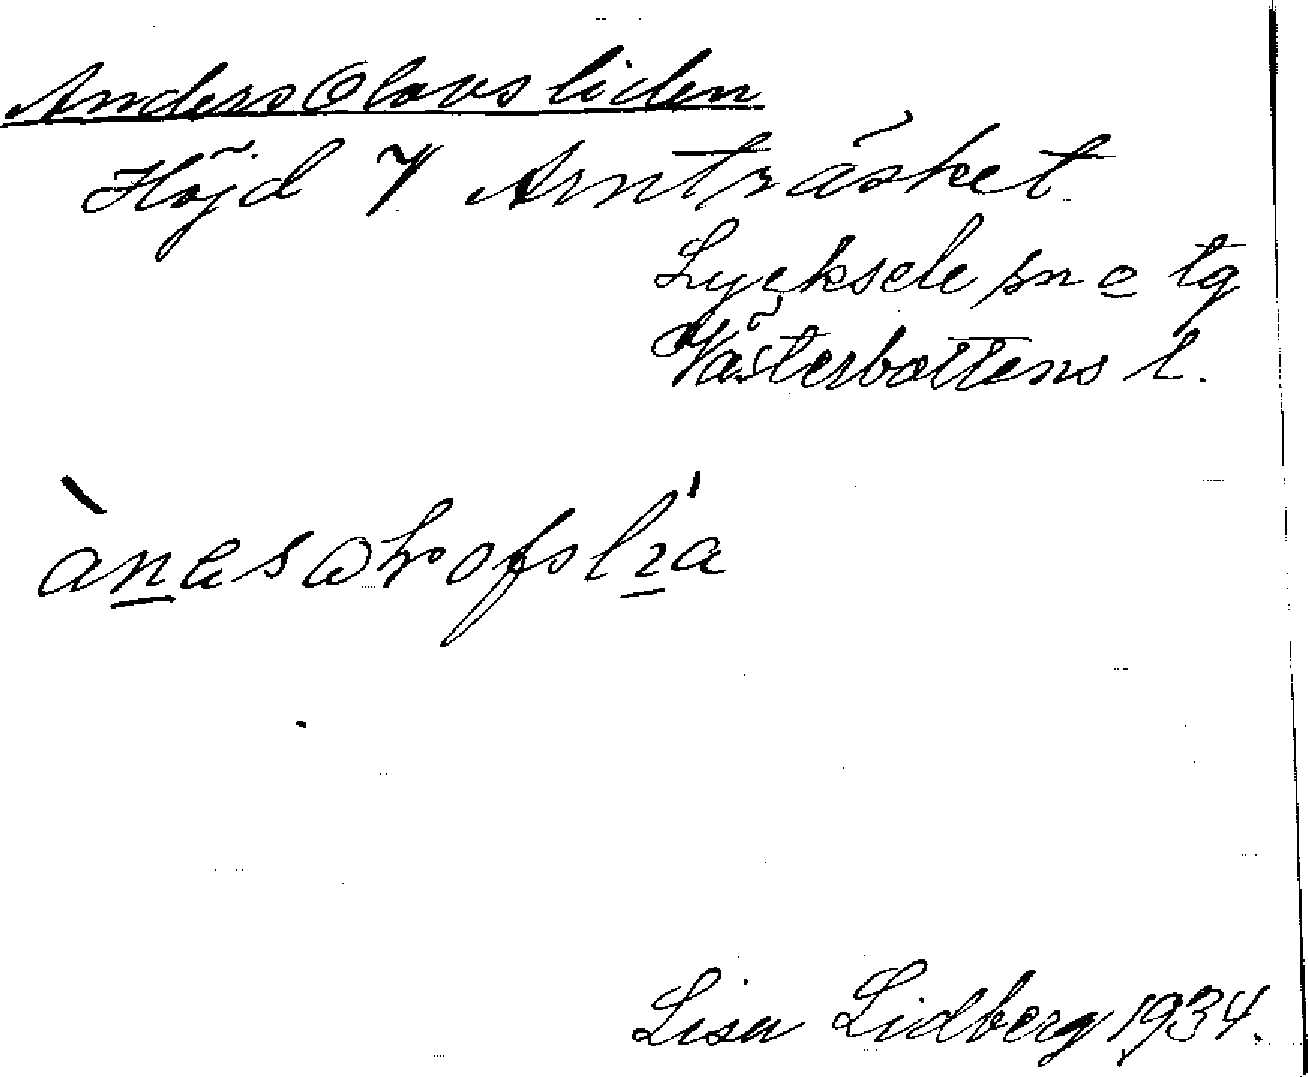 Anders Olovsliden
Höjd V Arnträsket
Lycksele sn o tg
Västerbottens l.
Lisa Lidberg 1934.